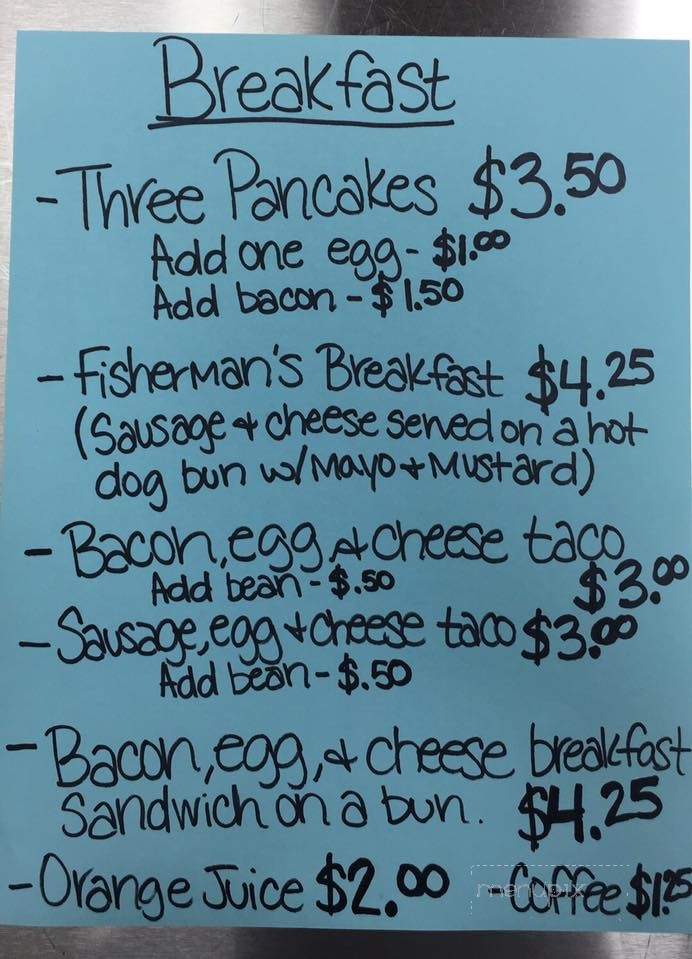 Breakfast
- Three Pancakes $3.50
Add one egg - $1.00
Add bacon - $1.50
- Fisherman's Breakfast $4.25
(Sausage + cheese served on a hot
dog bun w/ Mayo + Mustard)
- Bacon, egg, + cheese taco
Add bean - $.50 $3.00
- Sausage, egg + cheese taco $3.00
Add bean - $.50
- Bacon, egg, + cheese breakfast
sandwich on a bun. $4.25
- Orange Juice $2.00 - Coffee $1.25
menupix